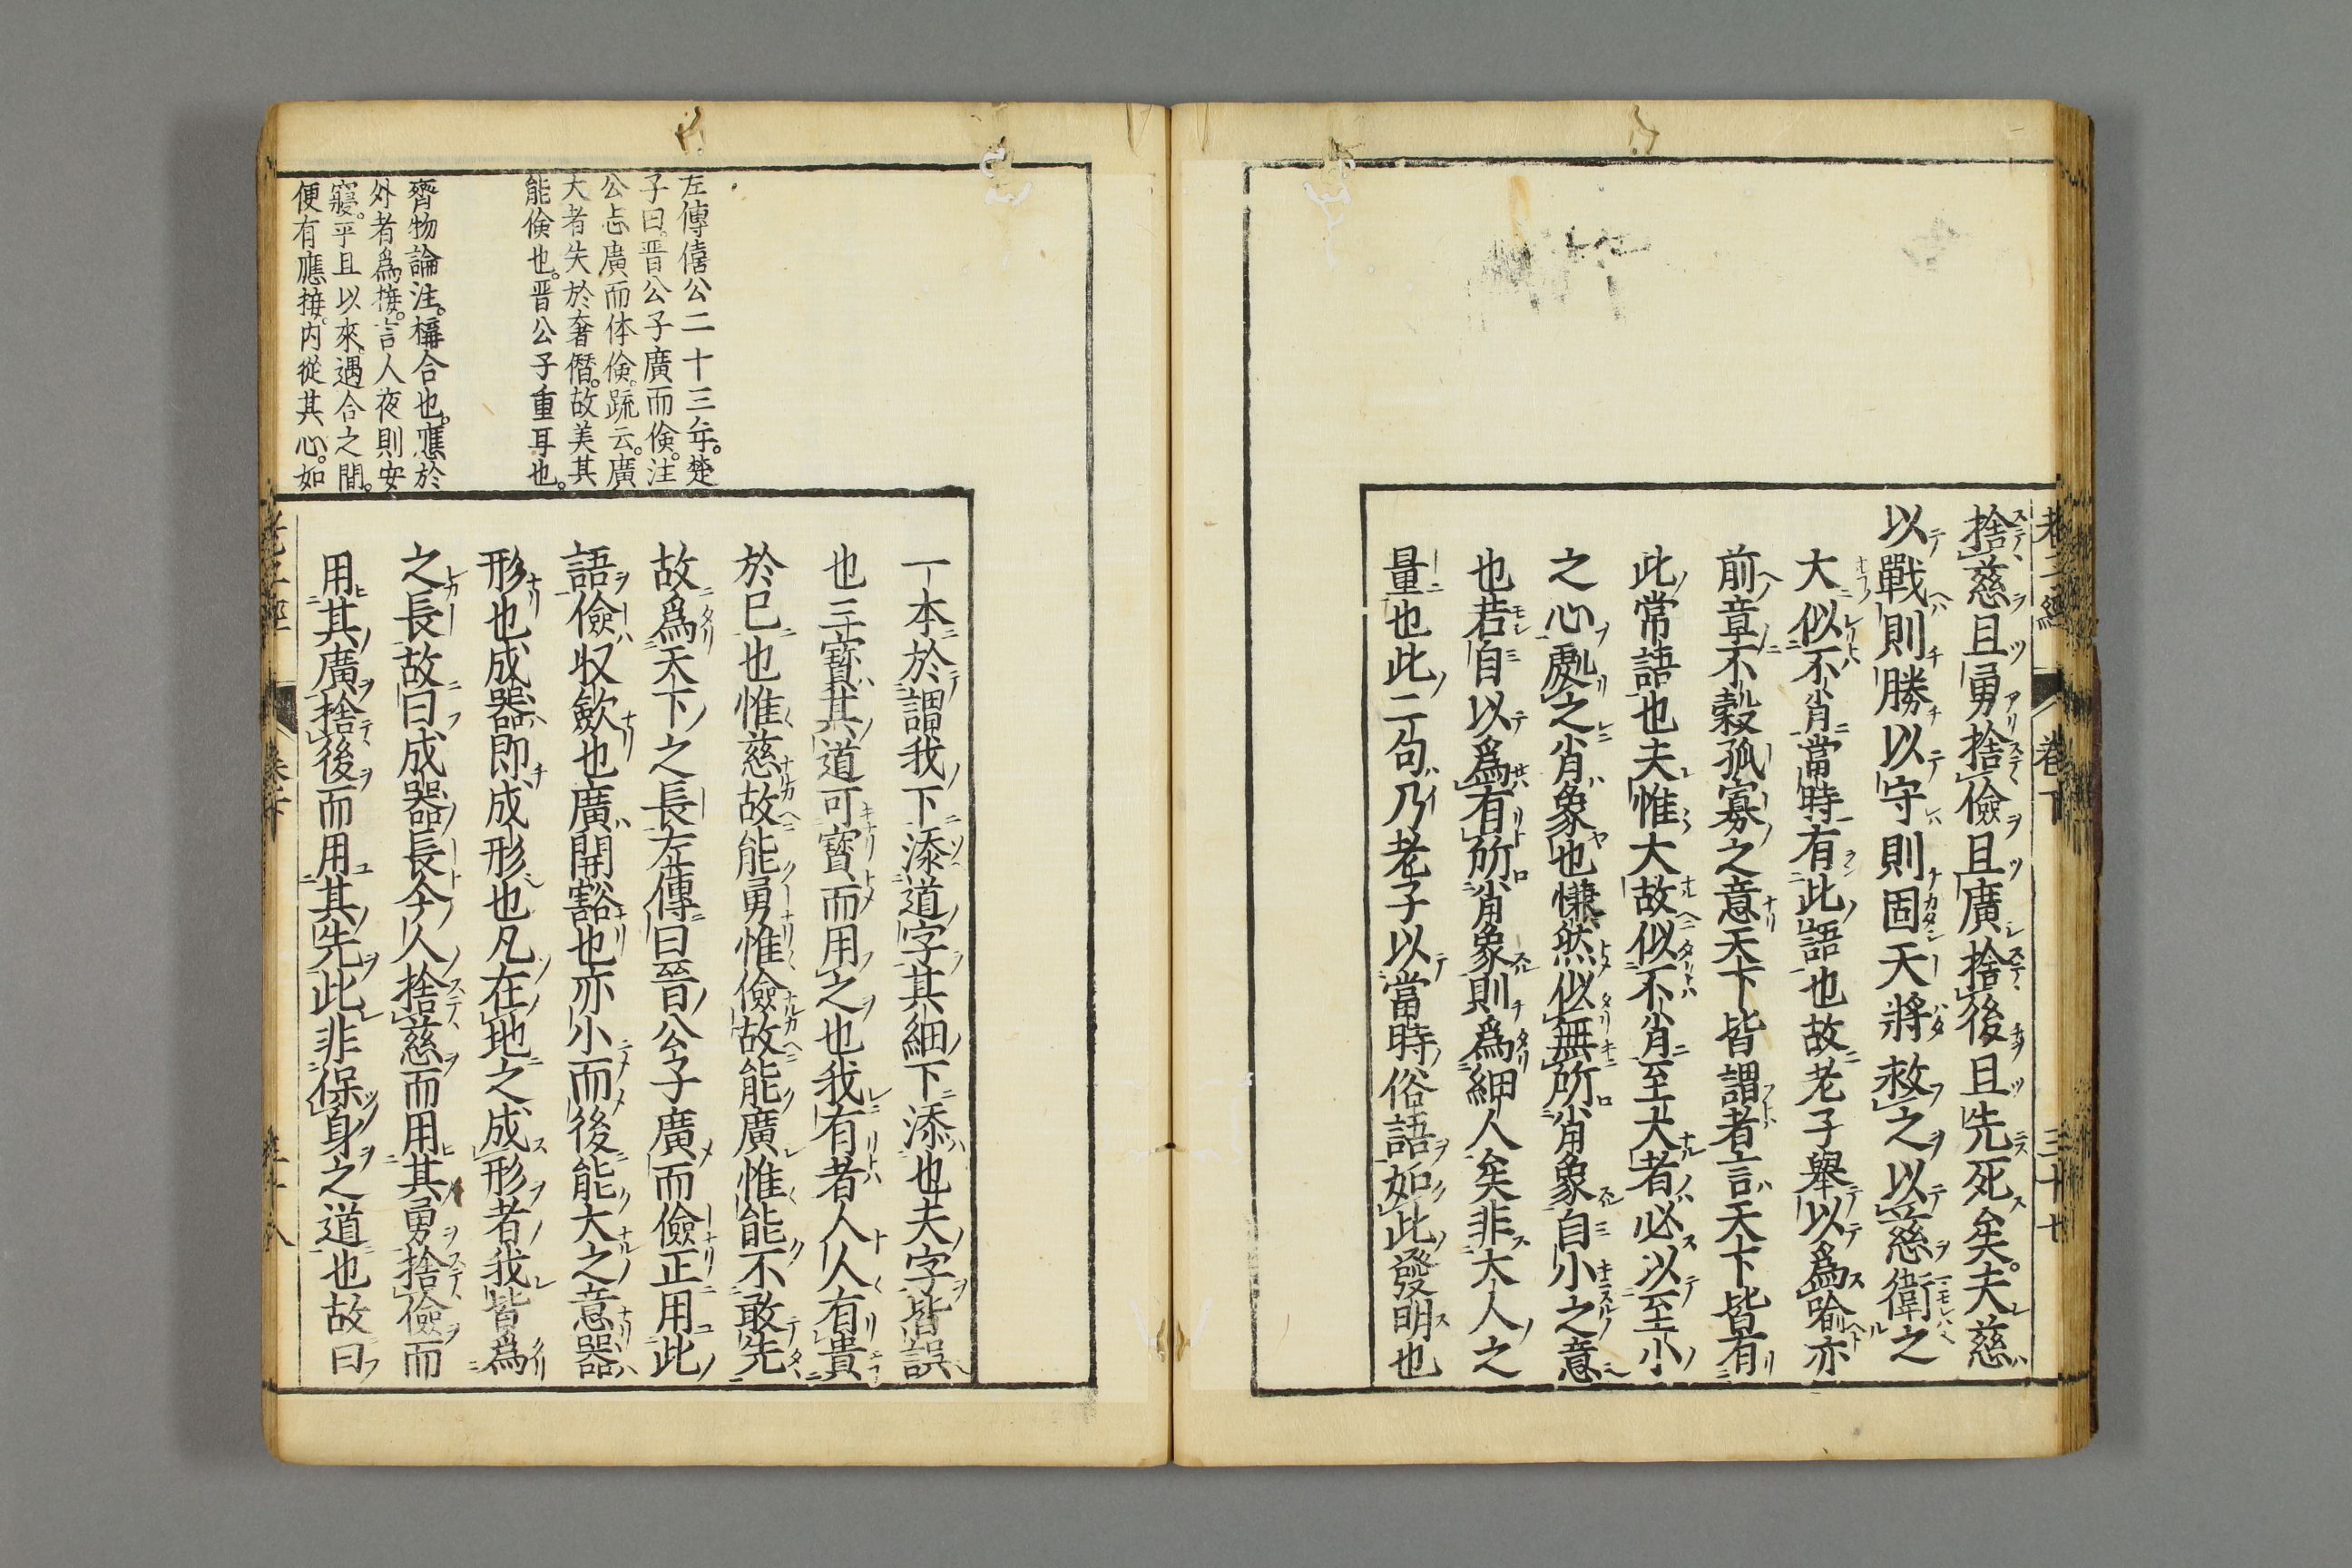 捨慈且勇捨儉且廣捨後且先死矣夫慈
以戰則勝以守則固天將救之以慈衛之
大似不肖當時有此語也故老子舉以爲喩亦
前章不穀孤寡之意天下皆謂者言天下皆有
此常語也夫惟大故似不肖至大者必以至小
之心處之肖象也慊然似無所肖象自小之意
也若自以爲有所肖象則爲細人矣非大人之
量也此二句乃老子以當時俗語如此發明也
卷下
左傳僖公二十三年楚
子曰晋公子廣而倹注
公志廣而体倹疏云廣
大者失於奢僭故美其
能倹也晋公子重耳也
齊物論注構合也應於
外者爲接言人夜則安
寢平旦以來遇合之間
便有應接内從其心如
一本於謂我下添道字其細下添也夫字皆誤
也三寶其道可寶而用之也我有者人人有貴
於已也惟慈故能勇惟儉故能廣惟能不敢先
故爲天下之長左傳曰晉公子廣而儉正用此
語儉収歛也廣開豁也亦小而後能大之意器
形也成器即成形也凡在地之成形者我皆爲
之長故曰成器長今人捨慈而用其勇捨儉而
用其廣捨後而用其先此非保身之道也故曰